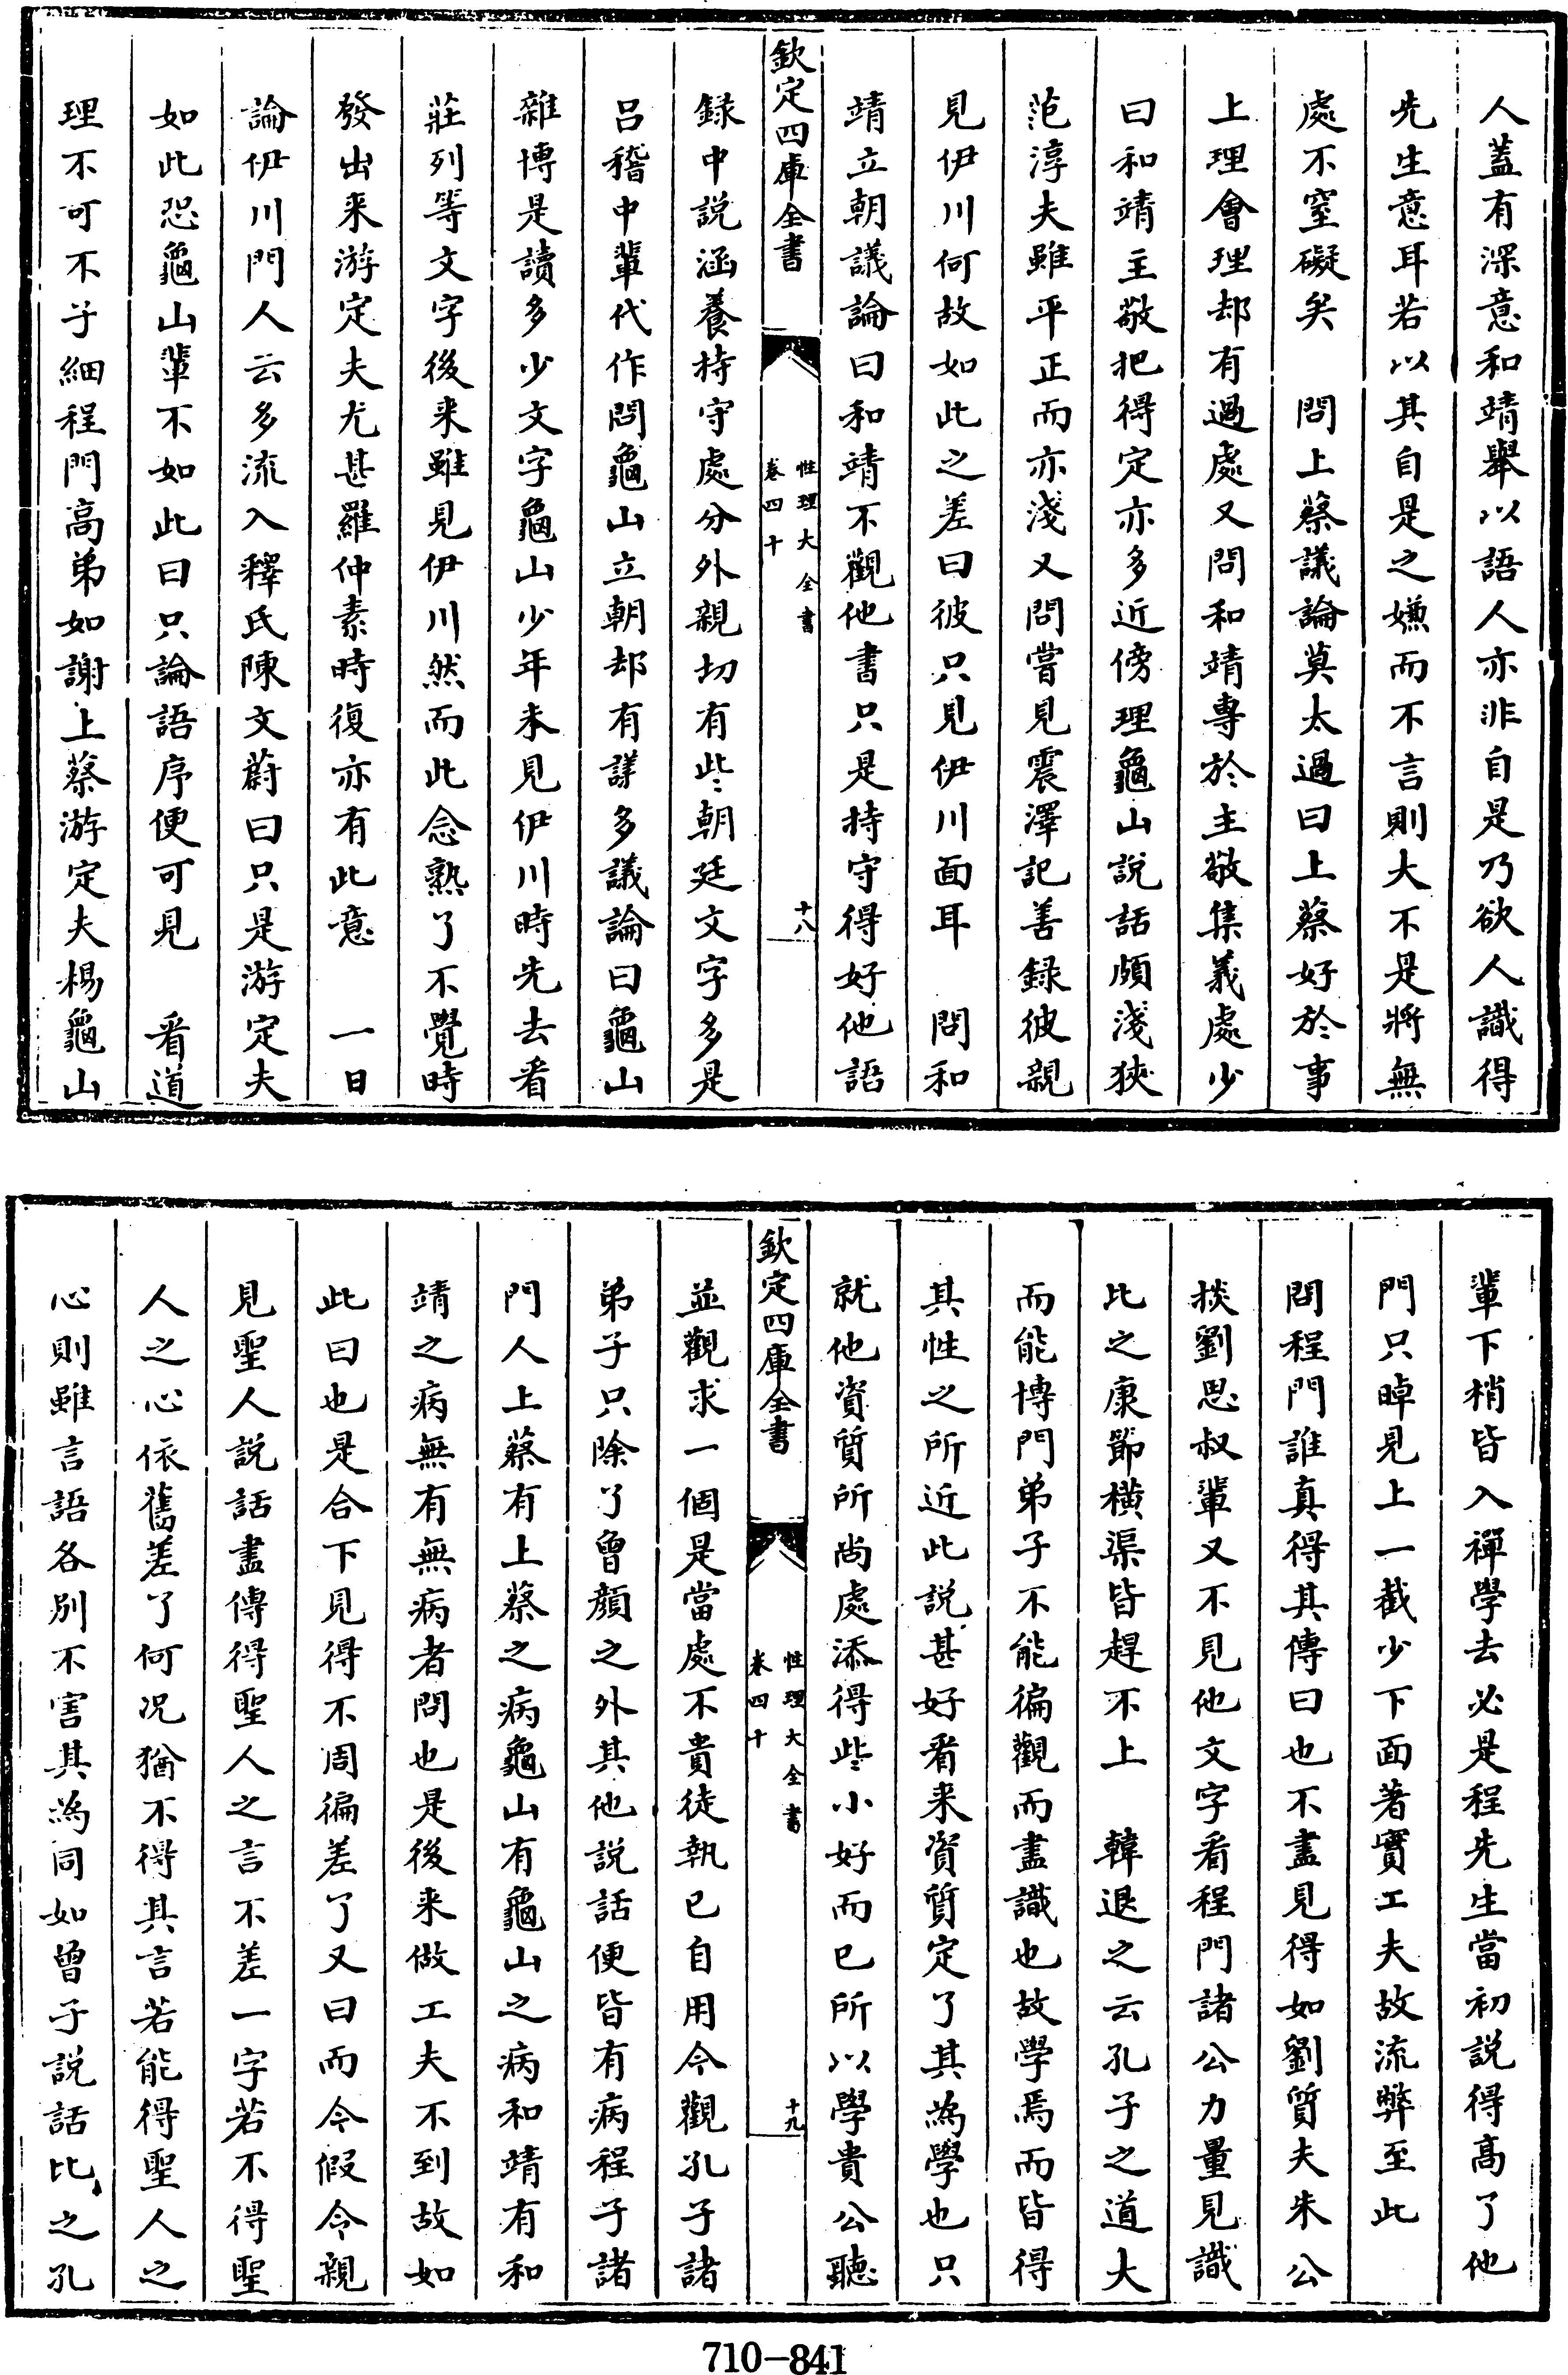 人蓋有深意和靖舉以語人亦非自是乃欲人識得
先生意耳若以其自是之嫌而不言則大不是將無
處不窒礙矣　問上蔡議論莫太過曰上蔡好於事
上理會理却有過處又問和靖專於主敬集義處少
曰和靖主敬把得定亦多近傍理龜山說話頗淺狹
范淳夫雖平正而亦淺又問嘗見震澤記善錄彼親
見伊川何故如此之差曰彼只見伊川面耳　問和
靖立朝議論曰和靖不觀他書只是持守得好他語
欽定四庫全書
性理大全書
卷四十
十八
録中説涵養持守處分外親切有些朝廷文字多是
吕稽中輩代作問龜山立朝却有許多議論曰龜山
雜博是讀多少文字龜山少年未見伊川時先去看
莊列等文字後来雖見伊川然而此念熟了不覺時
發出来游定夫尤甚羅仲素時復亦有此意　一日
論伊川門人云多流入釋氏陳文蔚曰只是游定夫
如此恐龜山輩不如此曰只論語序便可見　看道
理不可不子細程門高弟如謝上蔡游定夫楊龜山
輩下梢皆入禪學去必是程先生當初説得高了他
門只晫見上一截少下面著實工夫故流弊至此
問程門誰真得其傳曰也不盡見得如劉質夫朱公
掞劉思叔輩又不見他文字看程門諸公力量見識
比之康節横渠皆趕不上　韓退之云孔子之道大
而能博門弟子不能徧觀而盡識也故學焉而皆得
其性之所近此説甚好看来資質定了其為學也只
就他資質所尚處添得些小好而已所以學貴公聽
欽定四庫全書
性理大全書
卷四十
十九
並觀求一個是當處不貴徒執已自用今觀孔子諸
弟子只除了曾顔之外其他説話便皆有病程子諸
門人上蔡有上蔡之病龜山有龜山之病和靖有和
靖之病無有無病者問也是後来做工夫不到故如
此曰也是合下見得不周徧差了又曰而今假令親
見聖人説話盡傳得聖人之言不差一字若不得聖
人之心依舊差了何况猶不得其言若能得聖人之
心則雖言語各別不害其為同如曾子説話比之孔
710-841